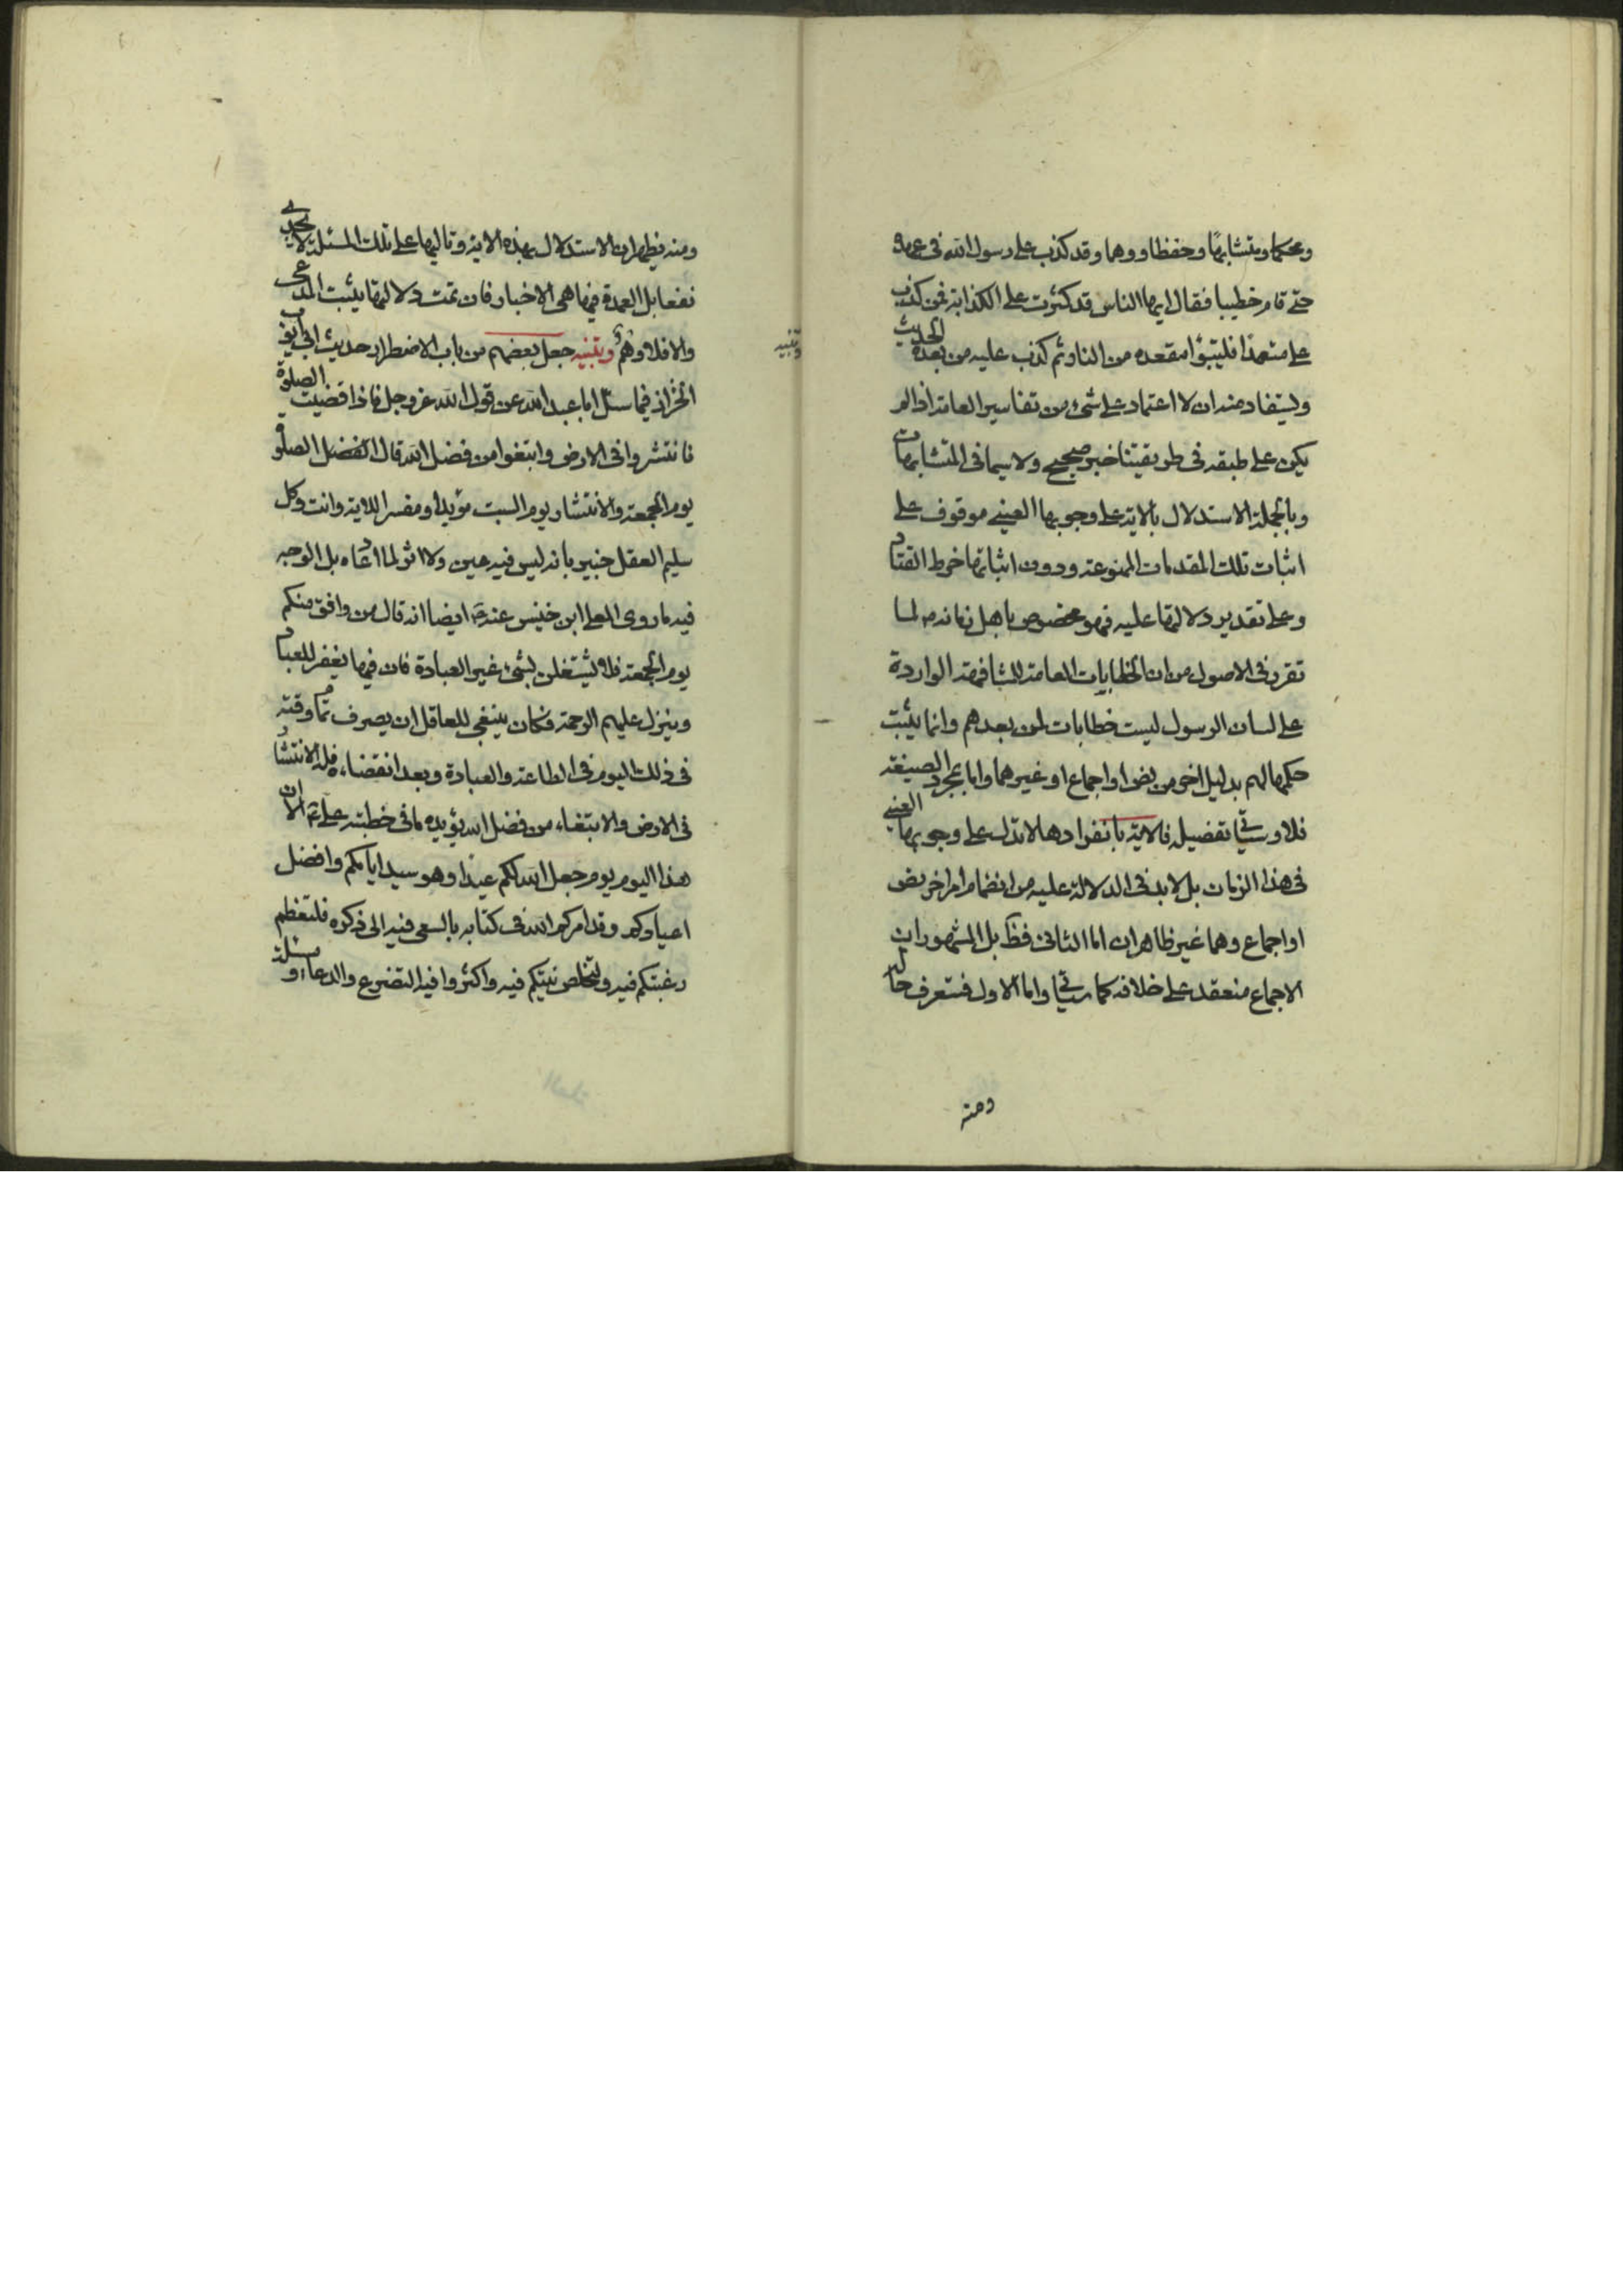 ومحكما ومتشابها وحفظا ووهما وقد كذب على رسول الله في عهده
حتى قام خطيبا فقال ايها الناس قد كثرت على الكذابة فمن كذب
على متعمدا فليتبؤا مقعده من النار ثم كذب عليه من بعده الحديث
ويستفاد منه ان لا اعتماد على شئ من تفاسير العامة اذا لم
يكن على طبقه في طريقتنا خبر صحيح ولا سيما في المتشابهات
وبالجملة الاستدلال بالاية على وجوبها العيني موقوف على
اثبات تلك المقدمات الممنوعة ودون اثباتها خرط القتاد
وعلى تقدير دلالتها عليه فهو مخصوص باهل زمانه ص لما
تقرر في الاصول من ان الخطابات العامة المشافهة الواردة
على لسان الرسول ليست خطابات لمن بعدهم وانما يثبت
حكمها لهم بدليل اخر من نص او اجماع او غيرهما واما بمجرد الصيغة
فلا وسيأتي تفصيله فالاية بانفرادها لا تدل على وجوبها العيني
في هذا الزمان بل لا بد في الدلالة عليه من انضمام امر اخر نص
او اجماع وهما غير ظاهران اما الثاني فظ بل المشهور ان
الاجماع منعقد على خلافه كما سيأتي واما الاول فستعرف حاله
ومنه
ومنه يظهر ان الاستدلال بهذه الاية وتاليها على تلك المسئلة لا يجدي
نفعا بل العمدة فيها هي الاخبار فان تمت دلالتها يثبت المدعى
والا فلا وهم وتنبيه جعل بعضهم من باب الاضطرار حديث ابي ايوب
وتنبيه
الخزاز فيما سئل ابا عبد الله عن قول الله عز وجل فاذا قضيت الصلوة
فانتشروا في الارض وابتغوا من فضل الله قال الفضل الصلوة
يوم الجمعة والانتشار يوم السبت مؤيدا ومفسرا للاية وانت وكل
سليم العقل خبير بانه ليس فيه عين ولا اثر لما ادعاه بل الوجه
فيه ما روى المعلى ابن خنيس عنه ع ايضا انه قال من وافق منكم
يوم الجمعة فلا يشتغلن بشئ غير العبادة فان فيها يغفر للعباد
وينزل عليهم الرحمة فكان ينبغي للعاقل ان يصرف تمام وقته
في ذلك اليوم في الطاعة والعبادة وبعد انقضاءه فله الانتشار
في الارض والابتغاء من فضل الله يؤيده ما في خطبة علي ع الا ان
هذا اليوم يوم جعل الله لكم عيدا وهو سيد ايامكم وافضل
اعيادكم وقد امركم الله في كتابه بالسعي فيه الى ذكره فلتعظم
رغبتكم فيه ولتخلص نيتكم فيه واكثروا فيه التضرع والدعاء ومسئلة